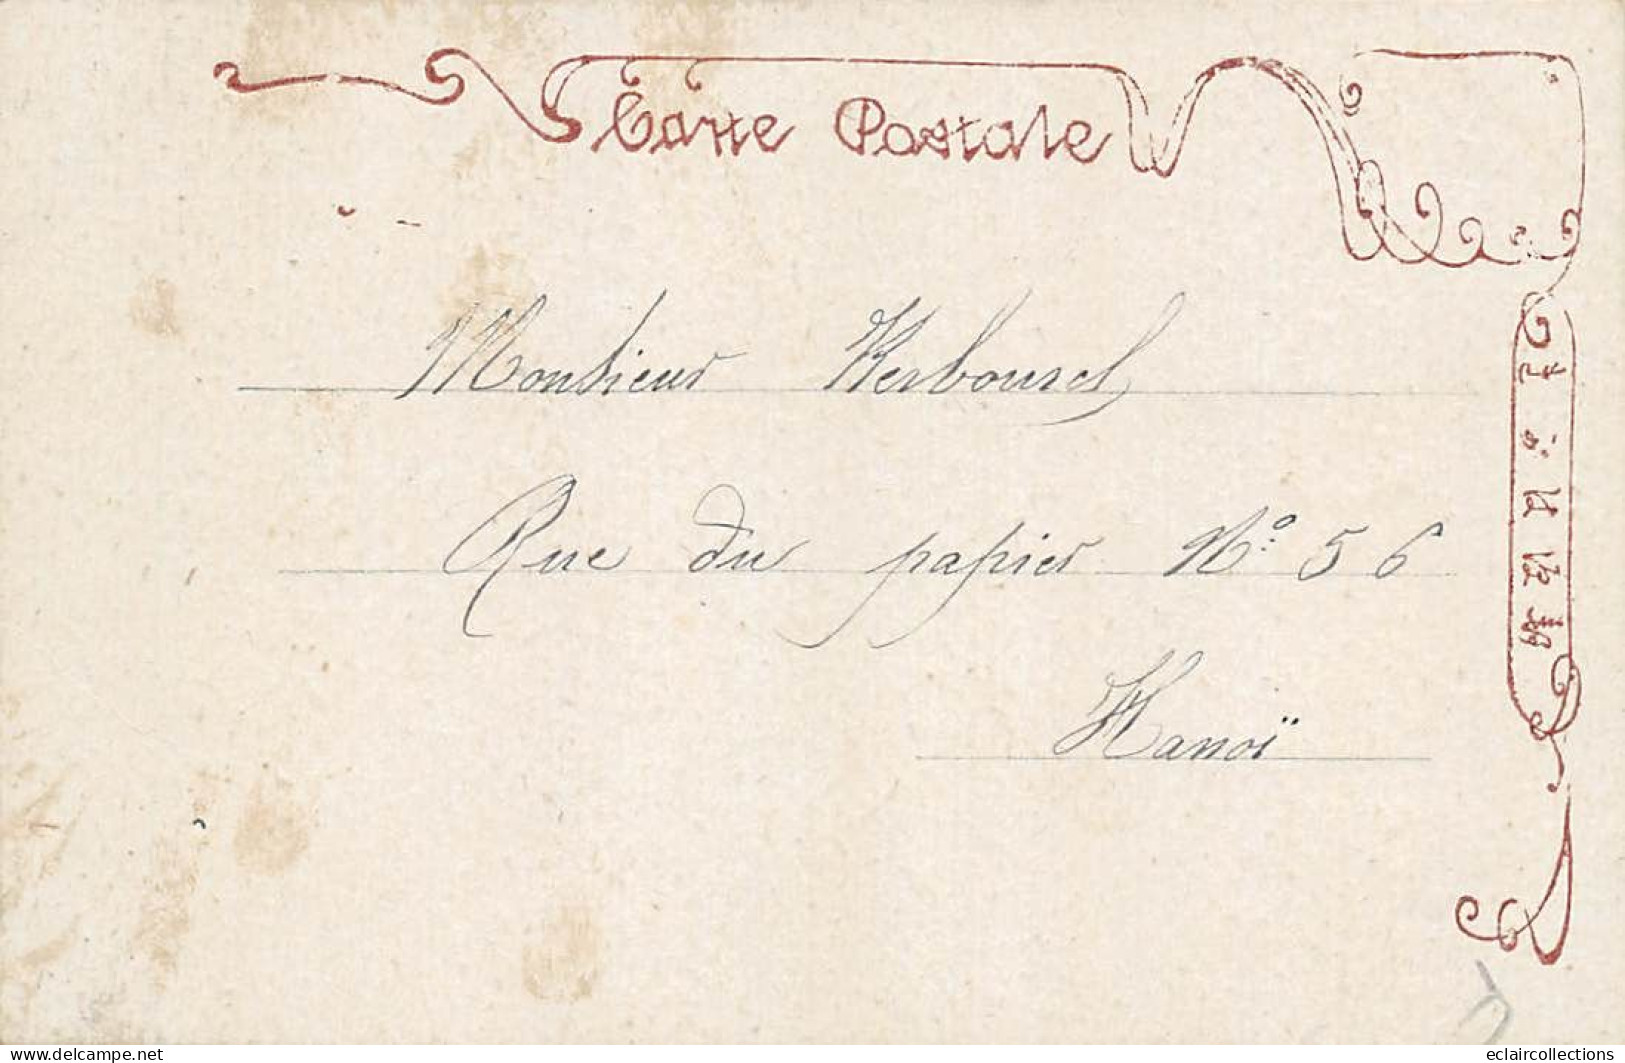 Carte Postale
Monsieur Kerbourch
Rue du papier N° 56
Hanoï
www.delcampe.net
eclaircollections